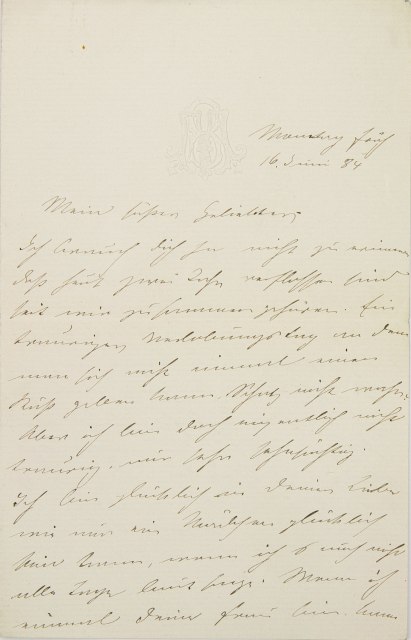 Montag früh
16. Juni 84
Mein süßer Geliebter,
Ich brauch dich ja nicht zu erinnern
daß heut zwei Jahre verflossen sind
seit wir zusammen gehören. Ein
trauriger Verlobungstag an dem
man sich nicht einmal einen
Kuß geben kann, Schatz nicht wahr.
Aber ich bin doch eigentlich nicht
traurig, nur sehr sehnsüchtig.
Ich bin glücklich in Deiner Liebe
wie nur ein Mädchen glücklich
sein kann, wenn ich es auch nicht
alle Tage laut sage. Wenn ich
einmal Deine Frau bin, kann